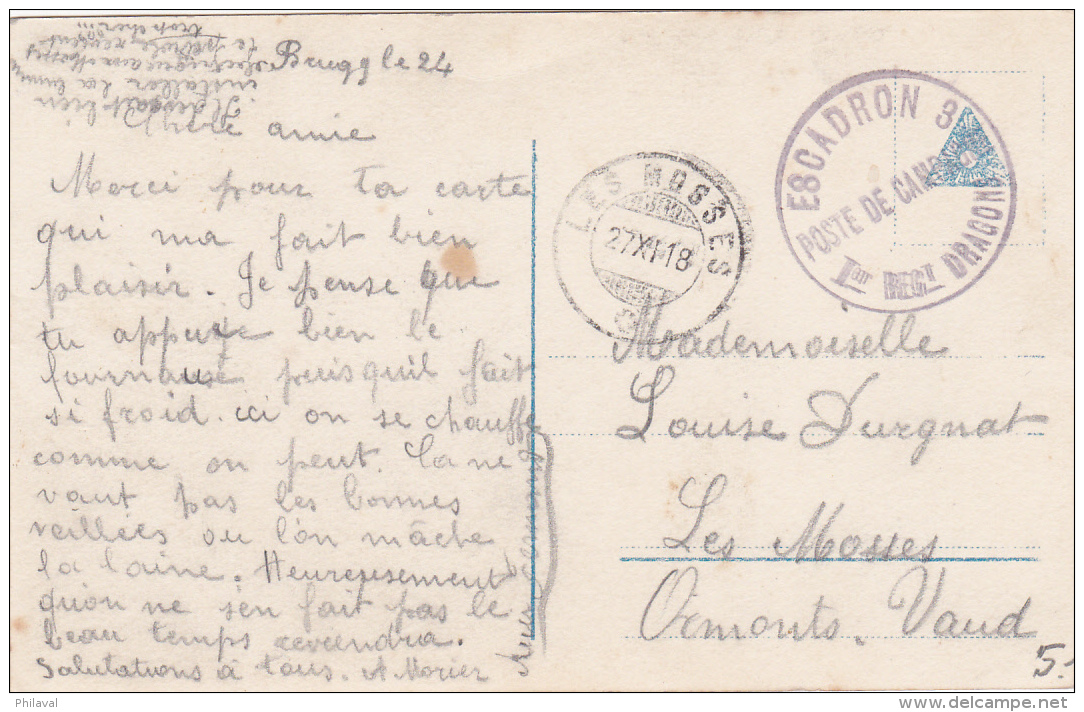 Brugg le 24
Chère amie
Merci pour ta carte
qui ma fait bien
plaisir. Je pense que
tu appuie bien le
fournause puisquil fait
si froid. ici on se chauffe
comme on peut. Ca ne
vaut pas les bonnes
veillées ou l'on mâche
la laine. Heureusement
qu'on ne s'en fait pas le
beau temps reviendra.
Salutations à tous. A Morier
Il devrait bien
installer la lumière
électrique aux Mosses
le pétrole revient
trop cher !!!
LES MOSSES
27.XI.18
ESCADRON 3
POSTE DE CAMP
Ier REGT DRAGON
Mademoiselle
Louise Durgnat
Les Mosses
Ormonts. Vaud
5.-
Philaval
www.delcampe.net